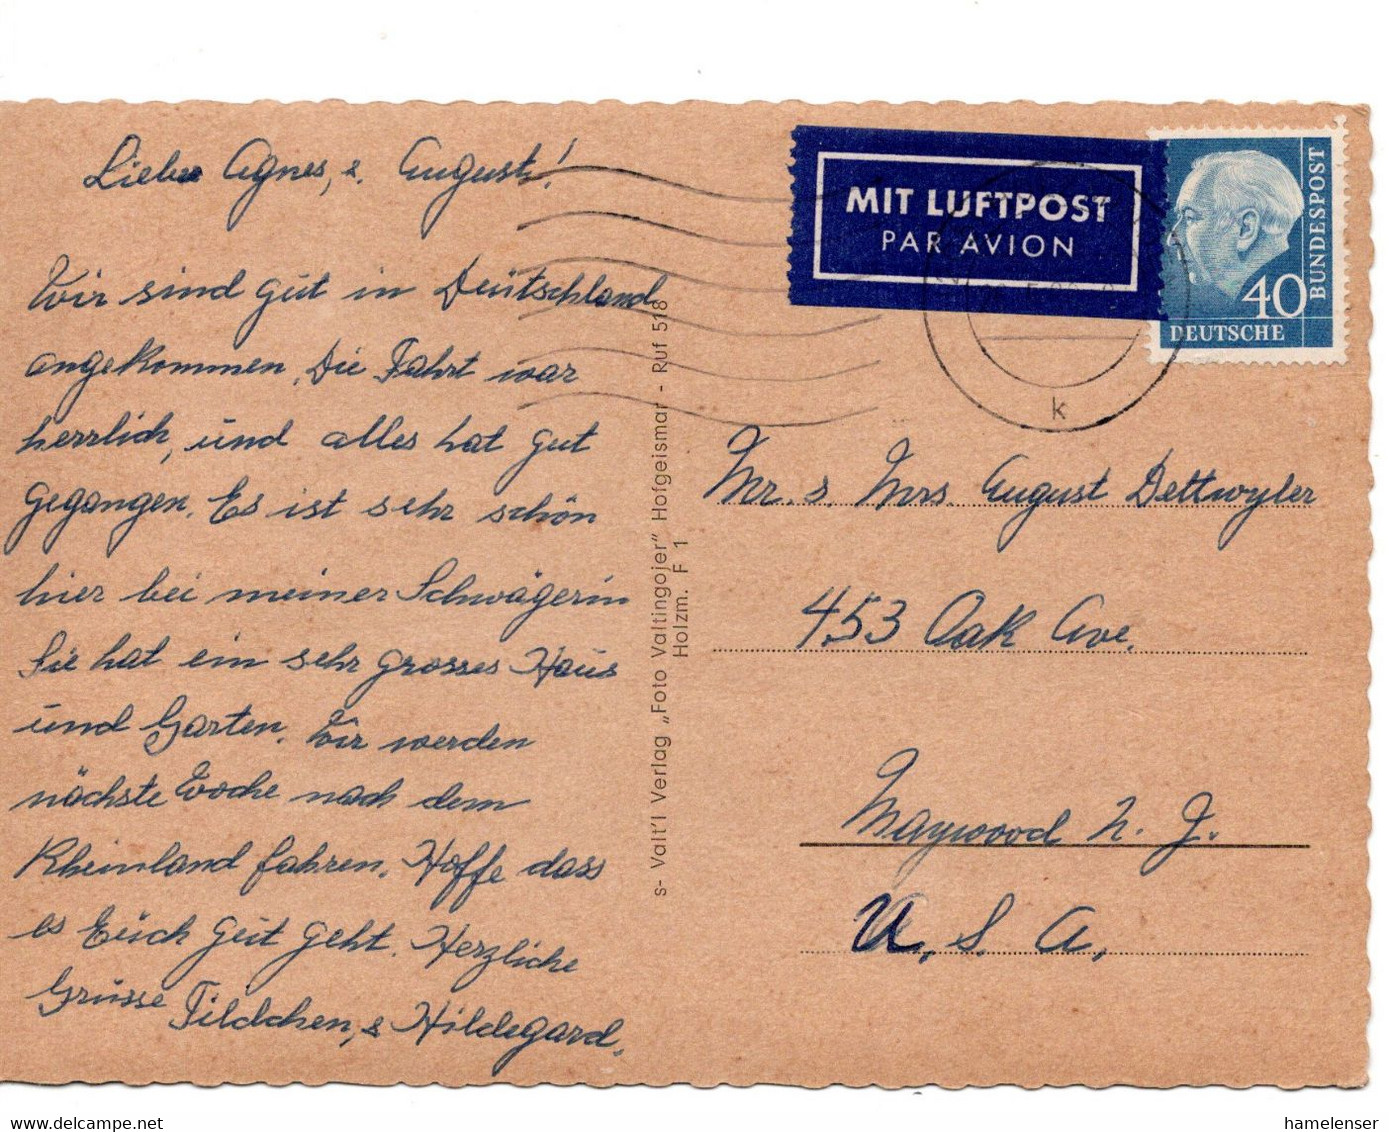 Liebe Agnes, & August!
Wir sind gut in Deütschland
angekommen. Die Fahrt war
herrlich, und alles hat gut
gegangen. Es ist sehr schön
hier bei meiner Schwägerin
Sie hat ein sehr grosses Haus
und Garten. Wir werden
nächste Woche nach dem
Rheinland fahren. Hoffe dass
es Eüch gut geht. Herzliche
Grüsse Tildchen, & Hildegard.
s- Valt'l Verlag „Foto Valtingojer" Hofgeismar - Ruf 518
Holzm. F 1
MIT LUFTPOST
PAR AVION
40
DEUTSCHE
BUNDESPOST
k
Mr. & Mrs August Dettwyler
453 Oak Ave.
Maywood N. J.
U. S. A.
hamelenser